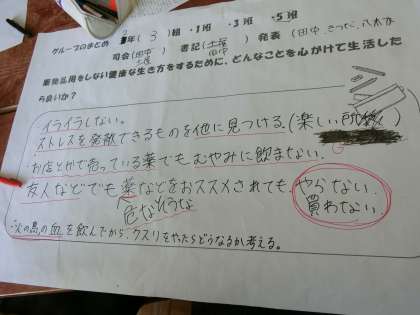 グループのまとめ 2年(3)組 ・1班 ・3班 ・5班
司会(田中 土屋) 書記(土屋 田中) 発表(田中、さつだ、八太
薬物乱用をしない健康な生き方をするために、どんなことを心がけて生活した
ら良いか?
イライラしない。
ストレスを発散できるものを他に見つける。(楽しい
お店とかで売っている薬でもむやみに飲まない。
友人などでも薬などをおススメされても、やらない、
危なそうな 買わない。
を飲んだから、クスリをやったらどうなるか考える。